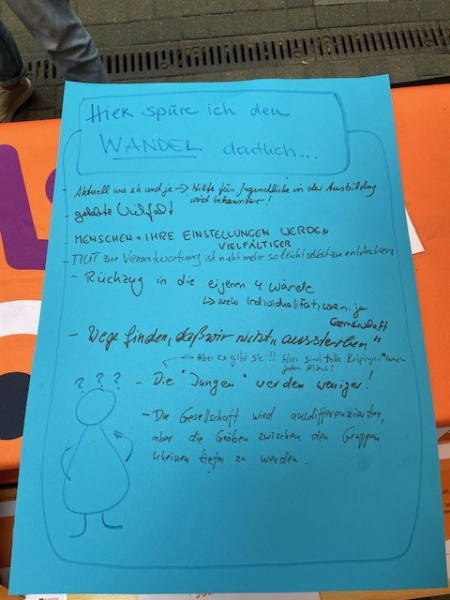 Hier spüre ich den
WANDEL deutlich...
- Aktuell wie eh und je → Hilfe für Jugendliche in der Ausbildung
wird bekannter!
gelebte Vielfalt
MENSCHEN + IHRE EINSTELLUNGEN WERDEN
VIELFÄLTIGER
- MUT zur Verantwortung ist nicht mehr so leicht selbst zu entdecken
- Rückzug in die eigenen 4 Wände
↳ mehr Individualität, weniger
Gemeinschaft
- Wege finden, daß wir nicht „aussterben"
→ Aber es gibt sie!! Hier sind tolle Kolpinger*innen
jeden Alters!
- Die "Jungen" werden weniger!
- Die Gesellschaft wird ausdifferenzierter,
aber die Gräben zwischen den Gruppen
scheinen tiefer zu werden.
? ? ?